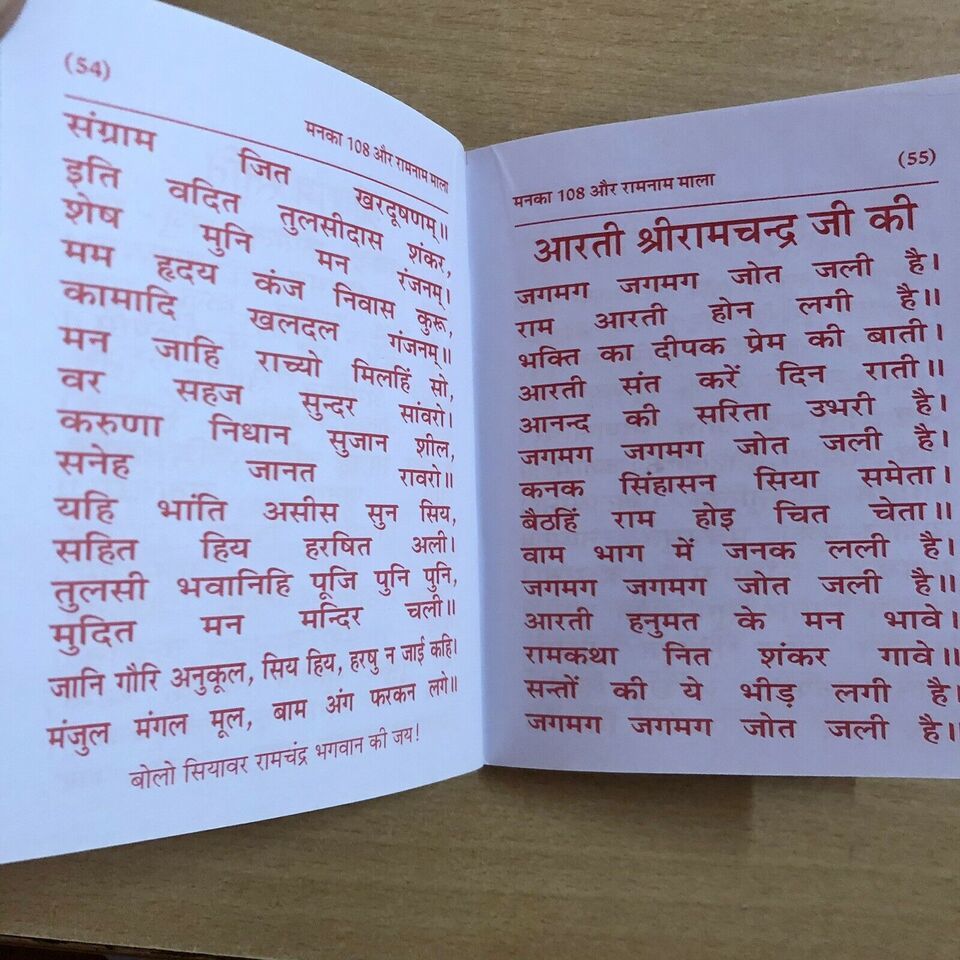 (54)
मनका 108 और रामनाम माला
संग्राम जित खरदूषणम्॥
इति वदित तुलसीदास शंकर,
शेष मुनि मन रंजनम्।
मम हृदय कंज निवास कुरू,
कामादि खलदल गंजनम्॥
मन जाहि राच्यो मिलहिं सो,
वर सहज सुन्दर सांवरो।
करुणा निधान सुजान शील,
सनेह जानत रावरो॥
यहि भांति असीस सुन सिय,
सहित हिय हरषित अली।
तुलसी भवानिहि पूजि पुनि पुनि,
मुदित मन मन्दिर चली॥
जानि गौरि अनुकूल, सिय हिय, हरषु न जाई कहि।
मंजुल मंगल मूल, बाम अंग फरकन लगे॥
बोलो सियावर रामचंद्र भगवान की जय!
(55)
मनका 108 और रामनाम माला
आरती श्रीरामचन्द्र जी की
जगमग जगमग जोत जली है।
राम आरती होन लगी है॥
भक्ति का दीपक प्रेम की बाती।
आरती संत करें दिन राती॥
आनन्द की सरिता उभरी है।
जगमग जगमग जोत जली है।
कनक सिंहासन सिया समेता।
बैठहिं राम होइ चित चेता॥
वाम भाग में जनक लली है।
जगमग जगमग जोत जली है॥
आरती हनुमत के मन भावे।
रामकथा नित शंकर गावे॥
सन्तों की ये भीड़ लगी है।
जगमग जगमग जोत जली है।